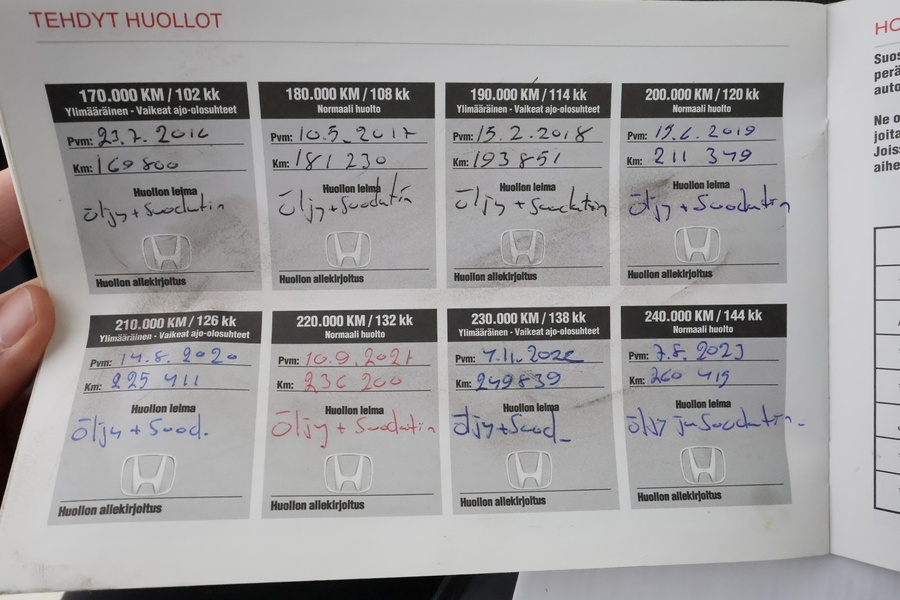 TEHDYT HUOLLOT
170.000 KM / 102 kk
Ylimääräinen - Vaikeat ajo-olosuhteet
Pvm: 23.7.2016
Km: 169 800
Huollon leima
öljy + Suodatin
Huollon allekirjoitus
180.000 KM / 108 kk
Normaali huolto
Pvm: 10.5.2017
Km: 181 230
Huollon leima
öljy + Suodatin
Huollon allekirjoitus
190.000 KM / 114 kk
Ylimääräinen - Vaikeat ajo-olosuhteet
Pvm: 15.2.2018
Km: 193 851
Huollon leima
öljy + Suodatin
Huollon allekirjoitus
200.000 KM / 120 kk
Normaali huolto
Pvm: 2019
Km: 211 349
Huollon leima
öljy + Suodatin
Huollon allekirjoitus
210.000 KM / 126 kk
Ylimääräinen - Vaikeat ajo-olosuhteet
Pvm: 14.8.2020
Km: 225 411
Huollon leima
öljy + Suod.
Huollon allekirjoitus
220.000 KM / 132 kk
Normaali huolto
Pvm: 10.9.2021
Km: 236 200
Huollon leima
öljy + Suodatin
Huollon allekirjoitus
230.000 KM / 138 kk
Ylimääräinen - Vaikeat ajo-olosuhteet
Pvm: 7.11.2022
Km: 249839
Huollon leima
öljy + Suod
Huollon allekirjoitus
240.000 KM / 144 kk
Normaali huolto
Pvm: 7.8.2023
Km: 260 415
Huollon leima
öljy ja Suodatin.
Huollon allekirjoitus
HO
Suos
perä
auto
Ne o
joita
Jois
aihe